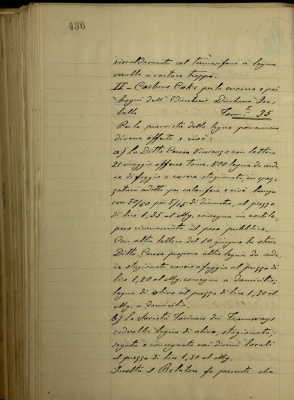 436
riscaldamento col termosifone a legna
verrebbe a costare troppo.
II - Carbone Coke per la cucina e pei
bagni dell'
bella Tonn. 35
Per la provvista della legna pervennero
diverse offerte e cioè:
a) La Ditta Vincenzo con lettera
21 maggio offerse Tonn. 500 legna da arde
re di faggio e cerro stagionata, in spez
zature adatte per caloriferi e cioè lunga
con di diametro, al prezzo
di lire 1,35 al Mg. consegna in cortile,
peso riconosciuto al peso pubblico.
Con altra lettera del 10 giugno la stessa
Ditta propone altra legna da arde
re stagionata cerro e faggio al prezzo di
lire 1,20 al Mg. consegna a domicilio,
legna di olivo al prezzo di lire 1,30 al
Mg. a domicilio.
b) La Società dei Tramways
cederebbe legna di olivo, stagionata,
segata e consegnata nei diversi locali
al prezzo di lire 1,30 al Mg.
Inoltre il Relatore fa presente che